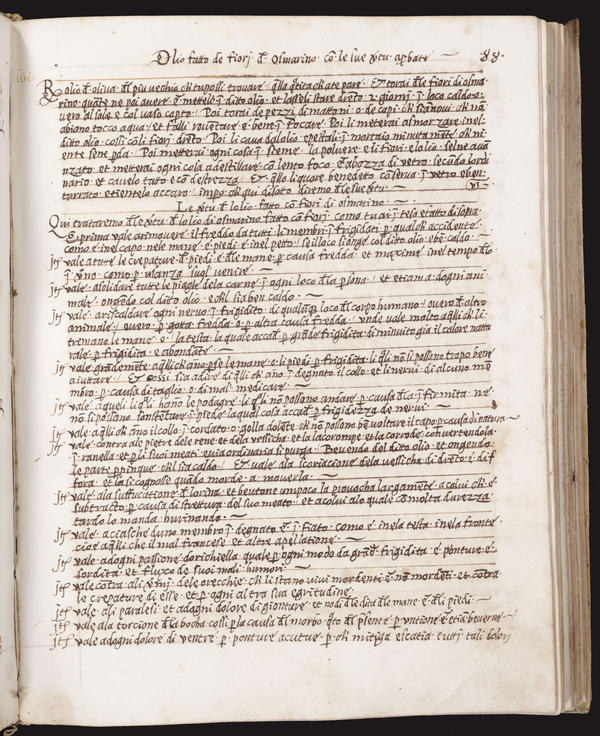 Olio fatto de fiorj · đ · Osmarino · cõ · le sue vtu · apbate · 88 ·
Ɍ olio đ · oliva · đl piu vechio ch tu possi trovare · qlla qtita ch ate pare · Et torai đ le fiori di osma
rino · quãte ne poi avere · e metteleh j dito olio · et lasseli stare drẽto · 2 · giornj · j loco caldo · o ·
vero al sole · e col vaso copto · Poi torai de pezzi di mattoni · o de capi · ch sianovi · ch nõ
abiano tocco aqua · et falli roventare · e benej focare · Poi li meterai a smorzare inel
dito olio · cossi cõ li fiorj drẽto · Poi li cava dal olio · e pestali j mortaio minutamẽte ch ni
ente sene pda · Poi metterai ogni cosa j sieme · la polvere e li fiori · e lolio · sel ne avã
nzato · et metterai ogni cosa a destillare cõ lento foco · e abozza di vetro · secãdo lordi
nario · et cavelo fatto e cõ destrezza · Et qllo liquore benedetto cõserva j vetro e ben
turrato · e tientelo accaro · impo · ch qui disoto diremo đ le sue vtu ·
Le vtu đ lolio · fatto cõ fiori di osmarino ·
Qui trataremo đ le vtu đ lo lio di osmarino fatto cõ fiorj · come tu ai j teso e fatto di sopra
E prima vale a rimovere · il freddo da tutti li membri j frigidati p qualch accidente ·
como e inel capo · nele mane · e piedi · e inel petto · se illoco si onge col dito olio · ebẽ caldo ·
Jtẽ vale atute le crepature · đ piedi · e đ le mane · p causa fredda · et maxime inel tempo đ lo
j vno · como · p usanza suol venire ·
Jtẽ vale · a solidare tute le piaghe dela carne j ogni loco đ la psona · et etiam a dogni ani
male · ongẽdo col dito olio · e ch sia ben caldo ·
Jtẽ vale · ariscaldare ogni nervo j frigidito · di qualũqz loco đl corpo humano · overo đ altro
animale · overo · p gota fredda · o · p altra causa fredda · unde vale molto a qlli ch li
tremano le mane · o la testa · la quale accad p grãde frigidita · diminuito gia il calore natu
rale · p frigidita · e abondãte ·
Jtẽ vale grãdemẽte · a qlli ch ãno pse le mane · o li piedi p frigidita · li qli nõ si possono trapo bene
aiuttare · Et cossi sia a dire di qlli ch ãno j degnato il collo · et li nervi · di alcuno mẽ
bro · p causa di taglio · o di mal medicare ·
Jtẽ vale aqueli li qli hãno le podagre · li qli nõ possono andare · p causa đ la j firmita · ne ·
nõ si possono · sonstẽtare j piede · la qual cosa accad p frigidezza de nervi ·
Jtẽ vale · a qlli ch ãno il collo j cordato · o golla dolẽte · ch nõ possono bẽ voltare il capo p causa di natura ·
Jtẽ vale contra ale pietre dele rene · et dela vessicha · et la corrompe · et la corrode · convertendola ·
j ranella · et p li suoi meati · e via ordinaria si purga · Bevendo del dito olio · et ongendo ·
le parte ppinque · ch sia caldo · Et vale ala scoriacione dela vessicha di dreto · i di f
fora · et la si cognosse quãdo morde · a movela ·
Jtẽ vale ala suffucatione đ lorina · et bevutone umpoco la provocha largamẽte · a colui ch e
subtracto p causa di strettura del suo meato · et a colui alo quale cõ molta durezza
tardo lo manda · burinando ·
Jtẽ vale · accasche duno membro j degnato e j fiato · como e inela testa · inela fronte ·
cioe a qlli che il mal francese et altre apellatione ·
Jtẽ vale · adogni passione dorichiella · quale p ogni modo da grad frigidita · e ponture · e ·
sordita · et fluxo de suoi mali humori ·
Jtẽ vale cõtra ali vmj · dele orecchie · ch li stano vivi mordenti e nõ mordẽti · et cõtra ·
le crepature di esse · et p ogni altra sua egritudine ·
Jtẽ vale · ali paralesi · et adogni dolore di gionture · et nodi đ le dita đ le mane · e đ li piedi ·
Jtẽ vale ala torcione đ la bocha · cossi p la causa đ l morbo · qto đ l psente p vntione e etiã beverne ·
Jtẽ vale adogni dolore di ventre · p ponture acute · p ch mitiga escatia · tuttj tali dolori